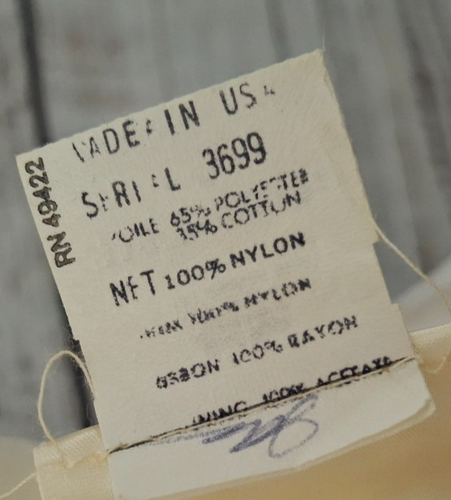 MADE IN USA
SERIAL 3699
RN 49422
VOILE 65% POLYESTER
35% COTTON
NET 100% NYLON
100% NYLON
RIBBON 100% RAYON
LINING 100% ACETATE